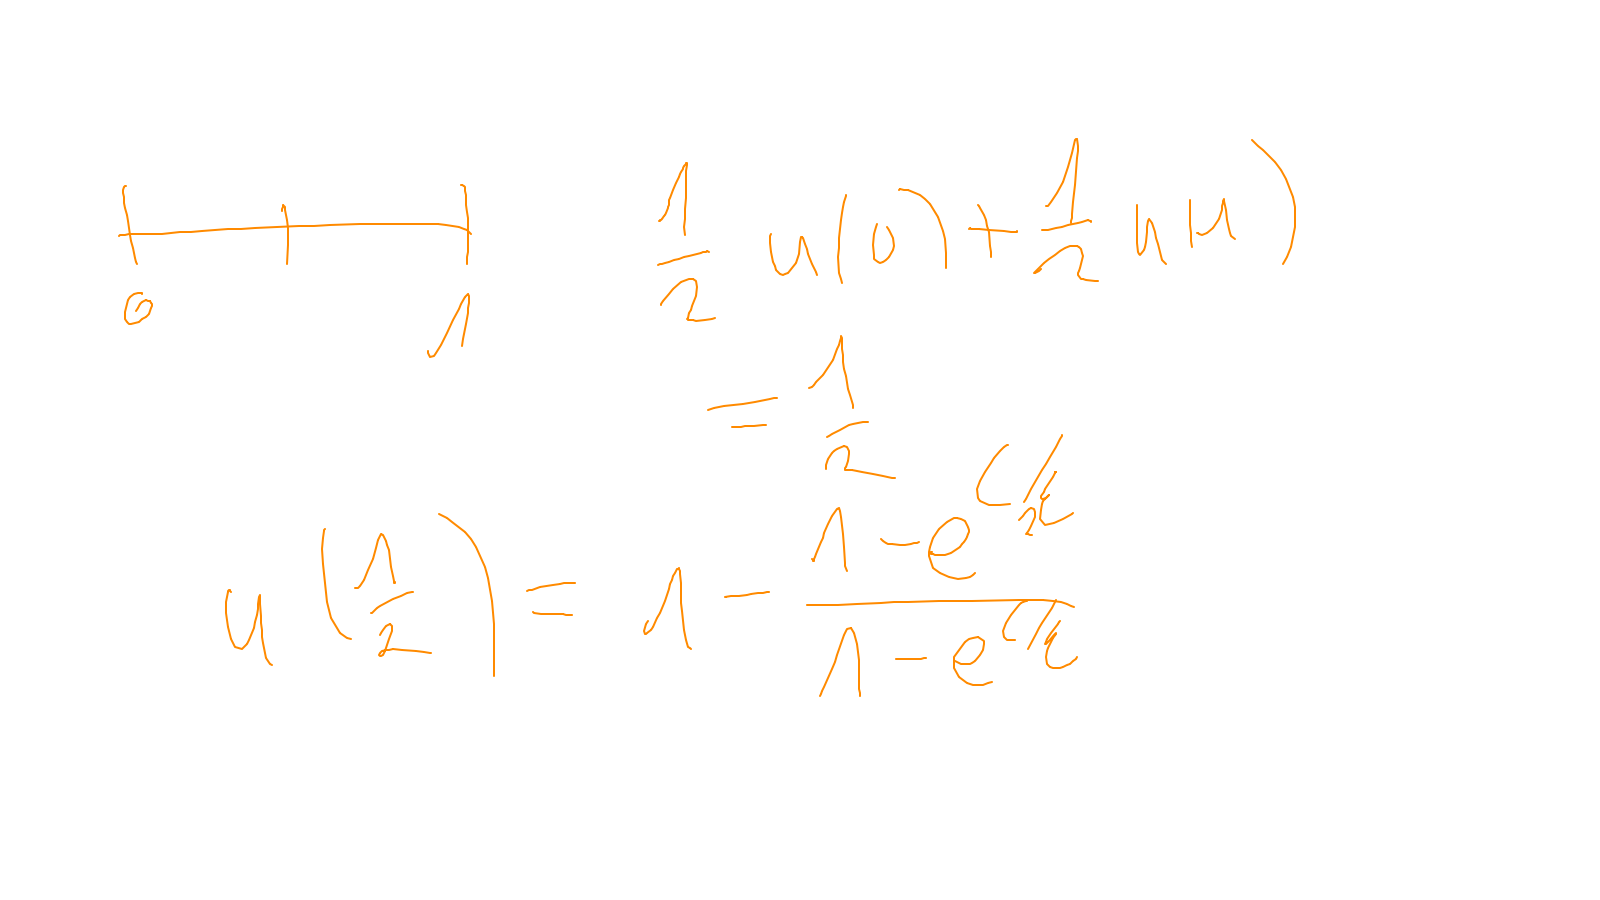 0 1
1/2 u(0) + 1/2 u(1)
= 1/2
u(1/2) = 1 - (1 - e^(c/2ε)) / (1 - e^(c/ε))